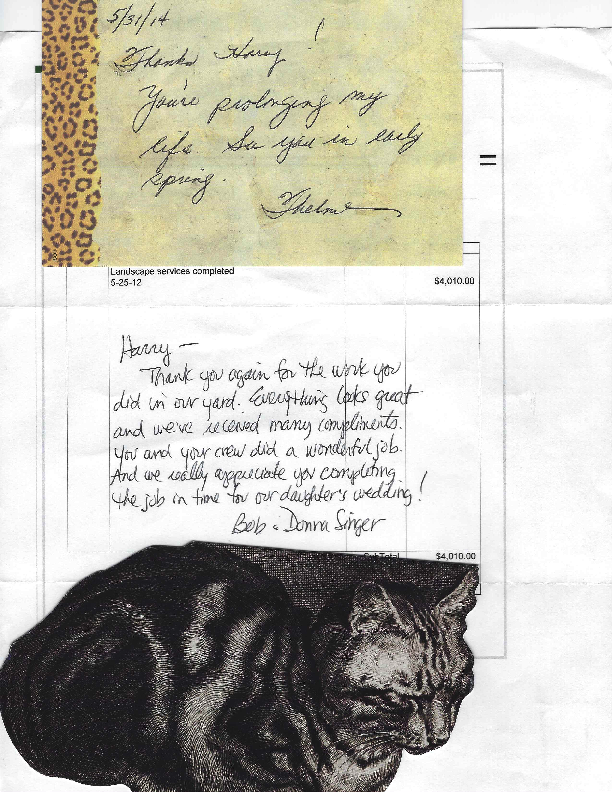 5/31/14
Thanks Harry!
You're prolonging my
life. See you in early
spring.
Thelma
Landscape services completed
5-25-12 $4,010.00
Harry —
Thank you again for the work you
did in our yard. Everything looks great
and we've received many compliments.
You and your crew did a wonderful job.
And we really appreciate you completing
the job in time for our daughter's wedding!
Bob & Donna Singer
SubTotal $4,010.00